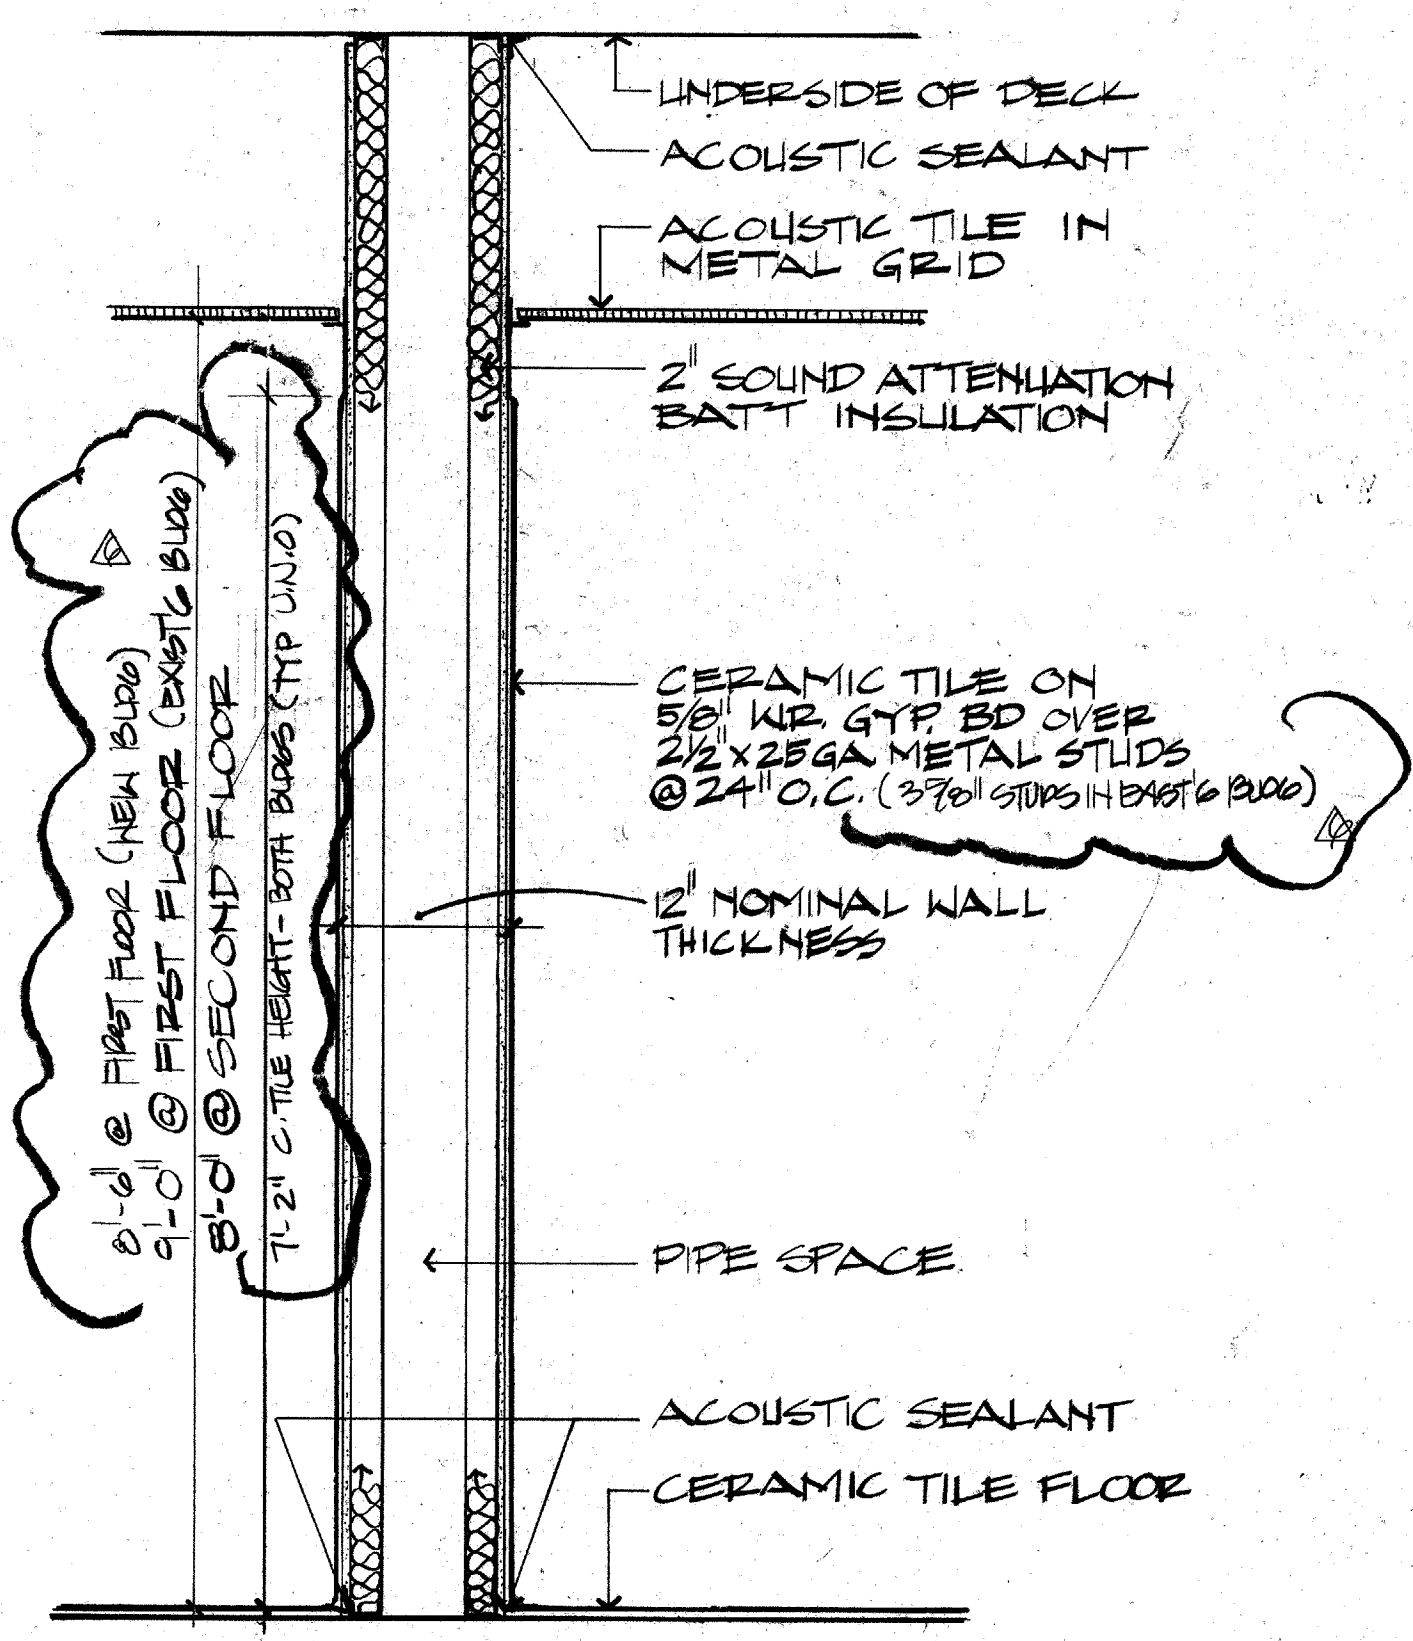 UNDERSIDE OF DECK
ACOUSTIC SEALANT
ACOUSTIC TILE IN
METAL GRID
2" SOUND ATTENUATION
BATT INSULATION
CERAMIC TILE ON
5/8" W.R. GYP. BD OVER
2 1/2" x 25 GA METAL STUDS
@ 24" O.C. (3 5/8" STUDS IN EAST'G BLDG)
12" NOMINAL WALL
THICKNESS
PIPE SPACE
ACOUSTIC SEALANT
CERAMIC TILE FLOOR
8'-6" @ FIRST FLOOR (NEW BLDG)
9'-0" @ FIRST FLOOR (EXIST'G BLDG)
8'-0" @ SECOND FLOOR
7'-2" C. TILE HEIGHT - BOTH BLDGS (TYP U.N.O)